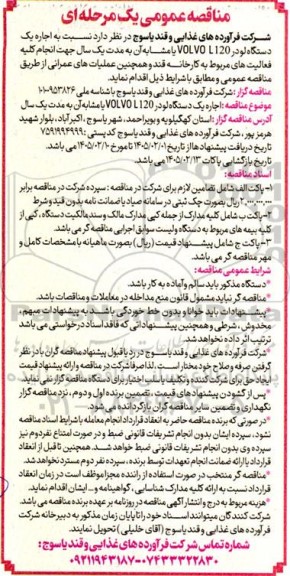 مناقصه عمومی یک مرحله ای
شرکت فرآورده های غذایی و قند یاسوج در نظر دارد نسبت به اجاره یک
دستگاه لودر VOLVO L120 یا مشابه آن به مدت یک سال جهت انجام کلیه
فعالیت های مربوط به کارخانه قند و همچنین عملیات های عمرانی از طریق
مناقصه عمومی و مطابق با شرایط ذیل اقدام نماید.
مناقصه گزار: شرکت فرآورده های غذایی و قند یاسوج با شناسه ملی
موضوع مناقصه: اجاره یک دستگاه لودر VOLVO L120 یا مشابه آن به مدت یک سال
آدرس مناقصه گزار: استان کهگیلویه و بویراحمد، شهر یاسوج، اکبرآباد، بلوار شهید
هرمز پور، شرکت فرآورده های غذایی و قند یاسوج کد پستی: ۷۵۹۱۹۹۴۹۹۹
تاریخ دریافت پیشنهاد ها از تاریخ ۱۴۰۵/۰۲/۰۱ تا مورخ ۱۴۰۵/۰۲/۱۰ می باشد.
تاریخ بازگشایی پاکات ۱۴۰۵/۰۲/۱۳ می باشد.
اسناد مناقصه:
۱- پاکت الف شامل تضامین لازم برای شرکت در مناقصه: سپرده شرکت در مناقصه برابر
۲,۰۰۰,۰۰۰,۰۰۰ ریال بصورت چک ثبتی در سامانه صیاد یا ضمانت نامه بدون قید و شرط
۲- پاکت ب شامل کلیه مدارک از جمله کپی مدارک مالک و سند مالکیت دستگاه، کپی از
کلیه بیمه های مربوط به دستگاه و لیست سوابق اجرایی مناقصه گر می باشد.
۳- پاکت ج شامل پیشنهاد قیمت (ریال) بصورت ماهیانه با مشخصات کامل و
مهر مناقصه گر می باشد.
شرایط عمومی مناقصه:
*دستگاه مذکور باید سالم و آماده به کار باشد.
*مناقصه گر نباید مشمول قانون منع مداخله در معاملات و مناقصات باشد.
*پیشنهادات باید خوانا و بدون خط خوردگی باشد به پیشنهادات مبهم،
مخدوش، شرطی و همچنین پیشنهاداتی که فاقد اسناد درخواستی می باشد
ترتیب اثر داده نخواهد شد.
*شرکت فرآورده های غذایی و قند یاسوج در رد یا قبول پیشنهاد مناقصه گران با در نظر
گرفتن صرفه و صلاح خود مختار است، لذا صرفا شرکت در مناقصه و ارائه پیشنهاد قیمت
ایجاد حق برای شرکت کننده و تکلیف یا سلب اختیار برای دستگاه مناقصه گزار نمی نماید
*پس از گشودن پیشنهادهای قیمت، تضمین برنده اول و دوم، نزد مناقصه گزار
نگهداری و تضمین سایر مناقصه گران بازگردانده می شود.
*در صورتی که برنده مناقصه حاضر به انعقاد قرارداد انجام معامله با شرایط اسناد مناقصه
نشود، سپرده ایشان بدون انجام تشریفات قانونی ضبط و در صورت امتناع نفر دوم نیز
سپرده وی بدون انجام تشریفات قانونی ضبط خواهد شد. همچنین تا قبل از انعقاد
قرارداد یا ارائه ضمانت انجام تعهدات توسط برنده، سپرده نفر دوم مسترد نخواهد شد.
*مناقصه گر منتخب در صورت استفاده از راننده مجزا موظف است در زمان انعقاد
قرارداد نسبت به ارائه کلیه مدارک شناسایی، گواهینامه و... ایشان اقدام نماید.
*هزینه مربوط به درج و انتشار آگهی مناقصه در روزنامه بر عهده برنده مناقصه می باشد.
شرکت کنندگان میتوانند اسناد خود را تا پایان زمان مذکور به دبیرخانه شرکت
فرآورده های غذایی و قند یاسوج (آقای خلیلی) تحویل نمایند.
شماره تماس شرکت فرآورده های غذایی و قند یاسوج:
۰۷۴۳۳۳۲۲۸۳۰-۰۹۲۱۱۹۴۳۱۸۷